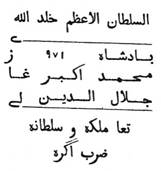 السلطان الاعظم خلد الله
بادشاه ۹۷۱ ز
محمد اكبر غا
جلال الدين لے
تعا ملكه و سلطانه
ضرب اگره